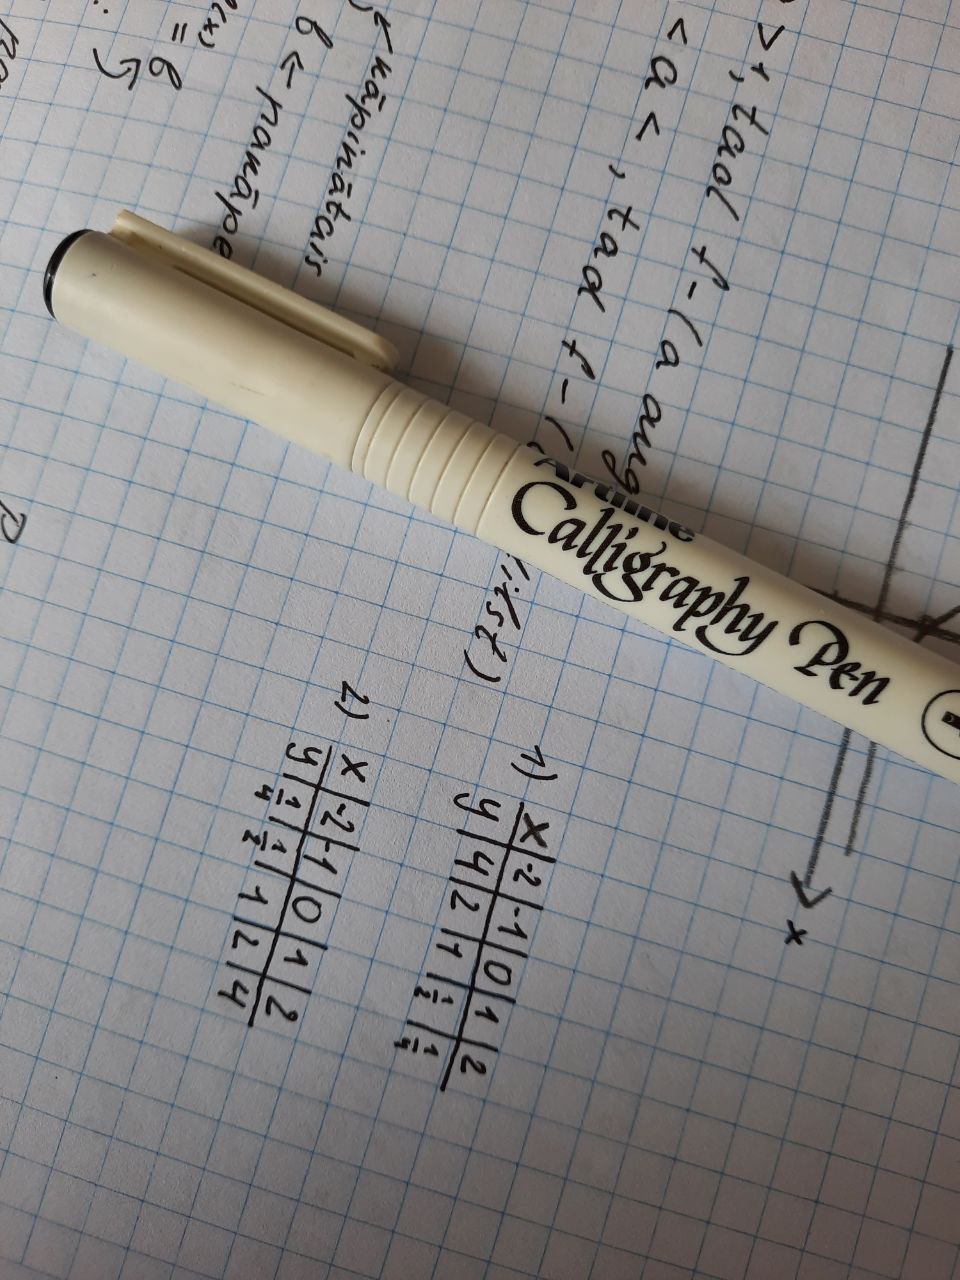 >1, tad f-ja aug
<a< , tad f-
x
kāpinātais
b ← pakāpe
(x)
= b
Artline
Calligraphy Pen
1)
x | -2 | -1 | 0 | 1 | 2
y | 4 | 2 | 1 | 1/2 | 1/4
2)
x | -2 | -1 | 0 | 1 | 2
y | 1/4 | 1/2 | 1 | 2 | 4